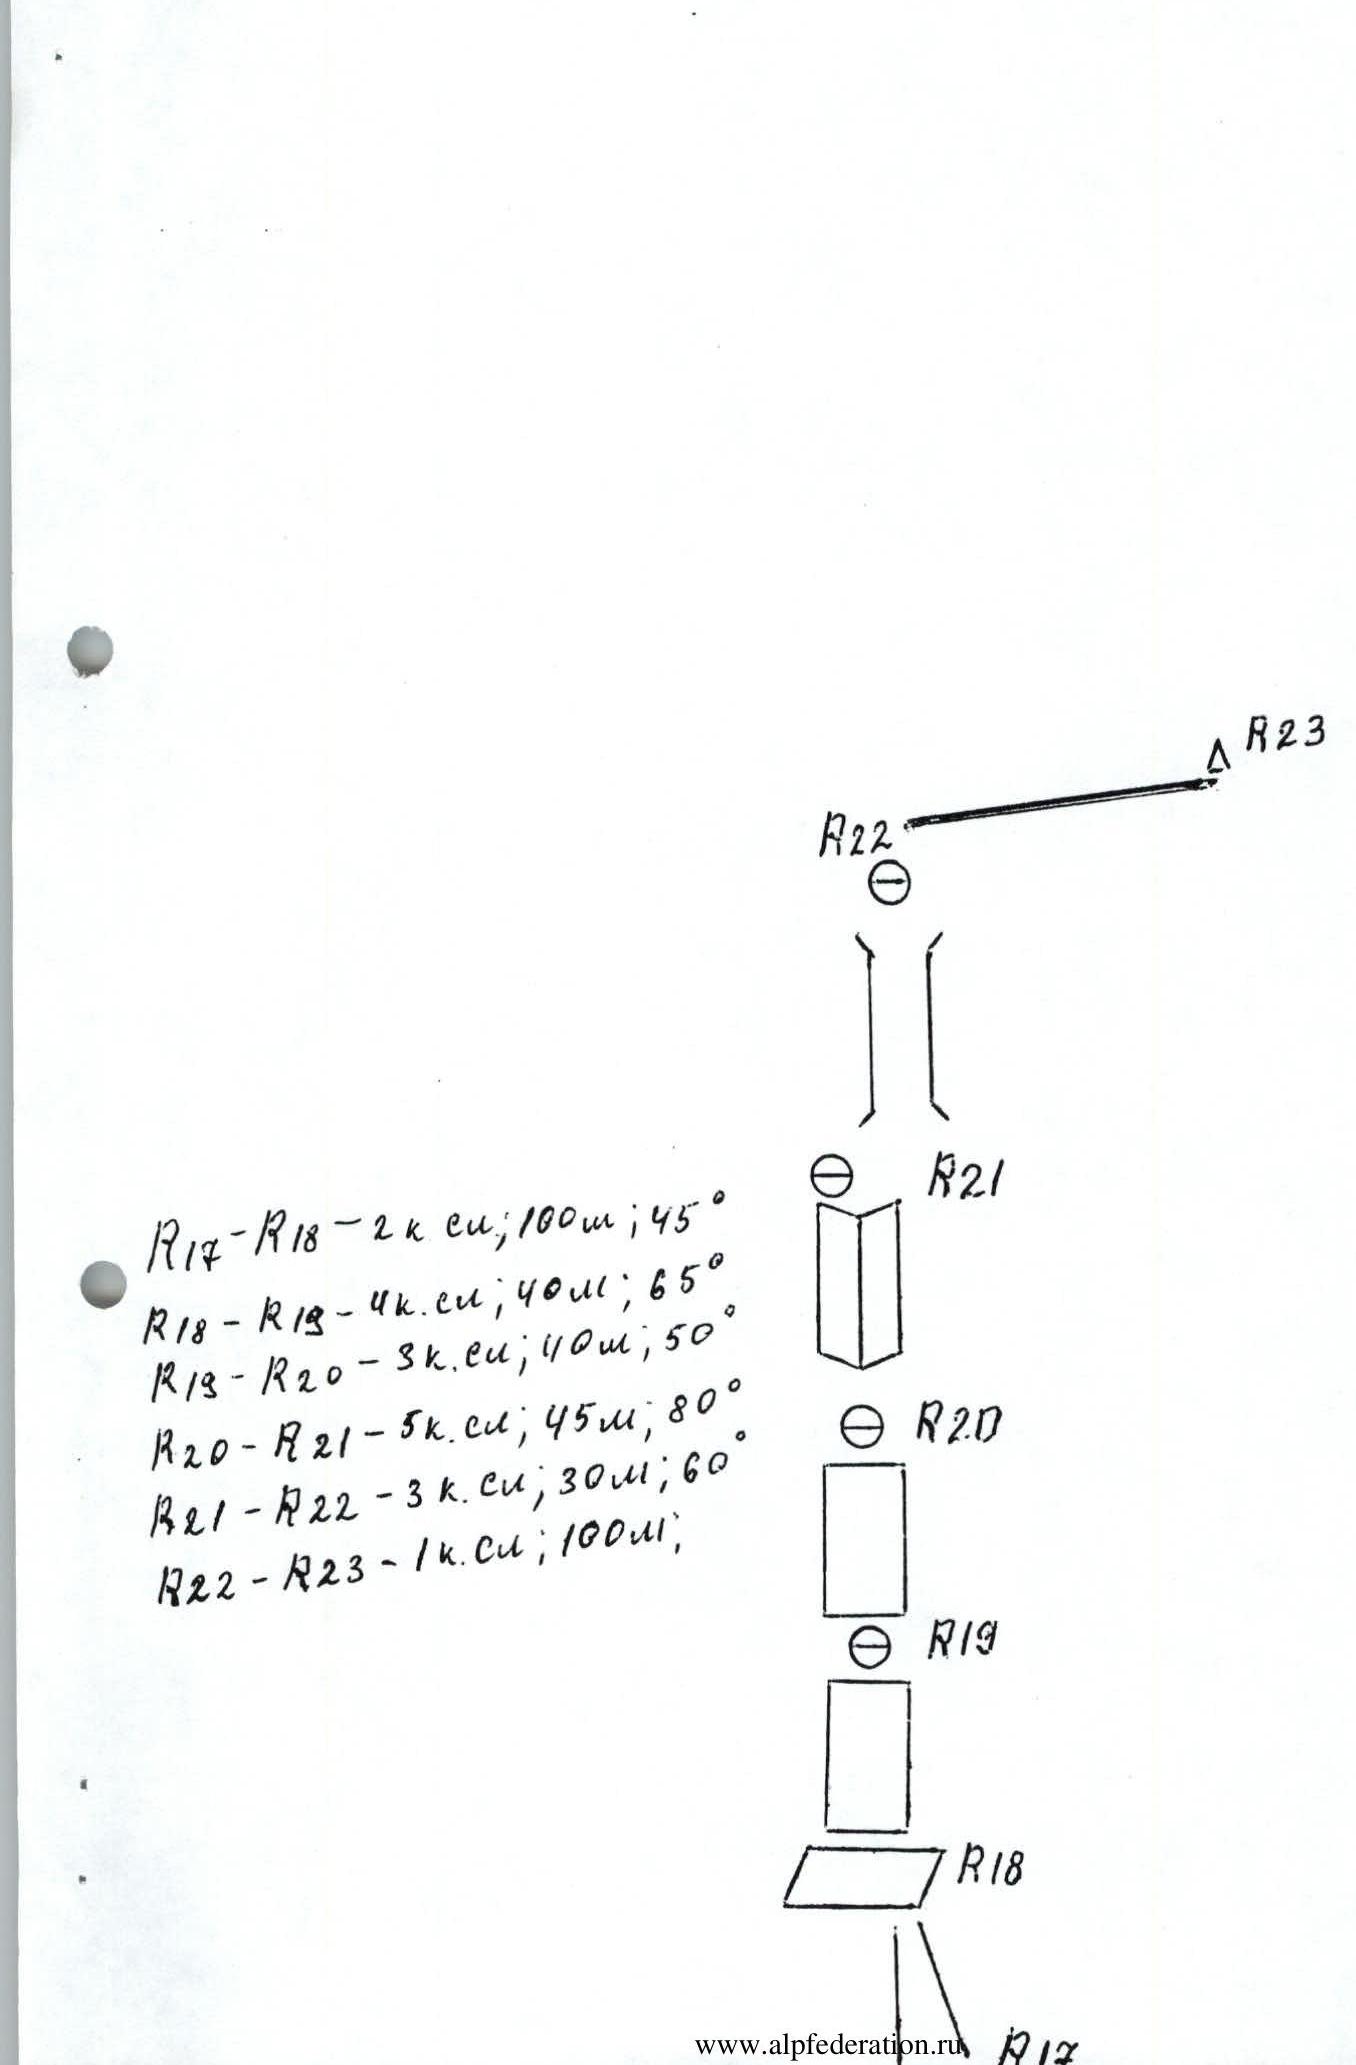 R23
R22
R21
R17-R18-2к сл; 100м; 45°
R18-R19-4к.сл; 40м; 65°
R19-R20-3к.сл; 40м; 50°
R20-R21-5к.сл; 45м; 80°
R20
R21-R22-3к.сл; 30м; 60°
R22-R23-1к.сл; 100м;
R19
R18
R17
www.alpfederation.ru